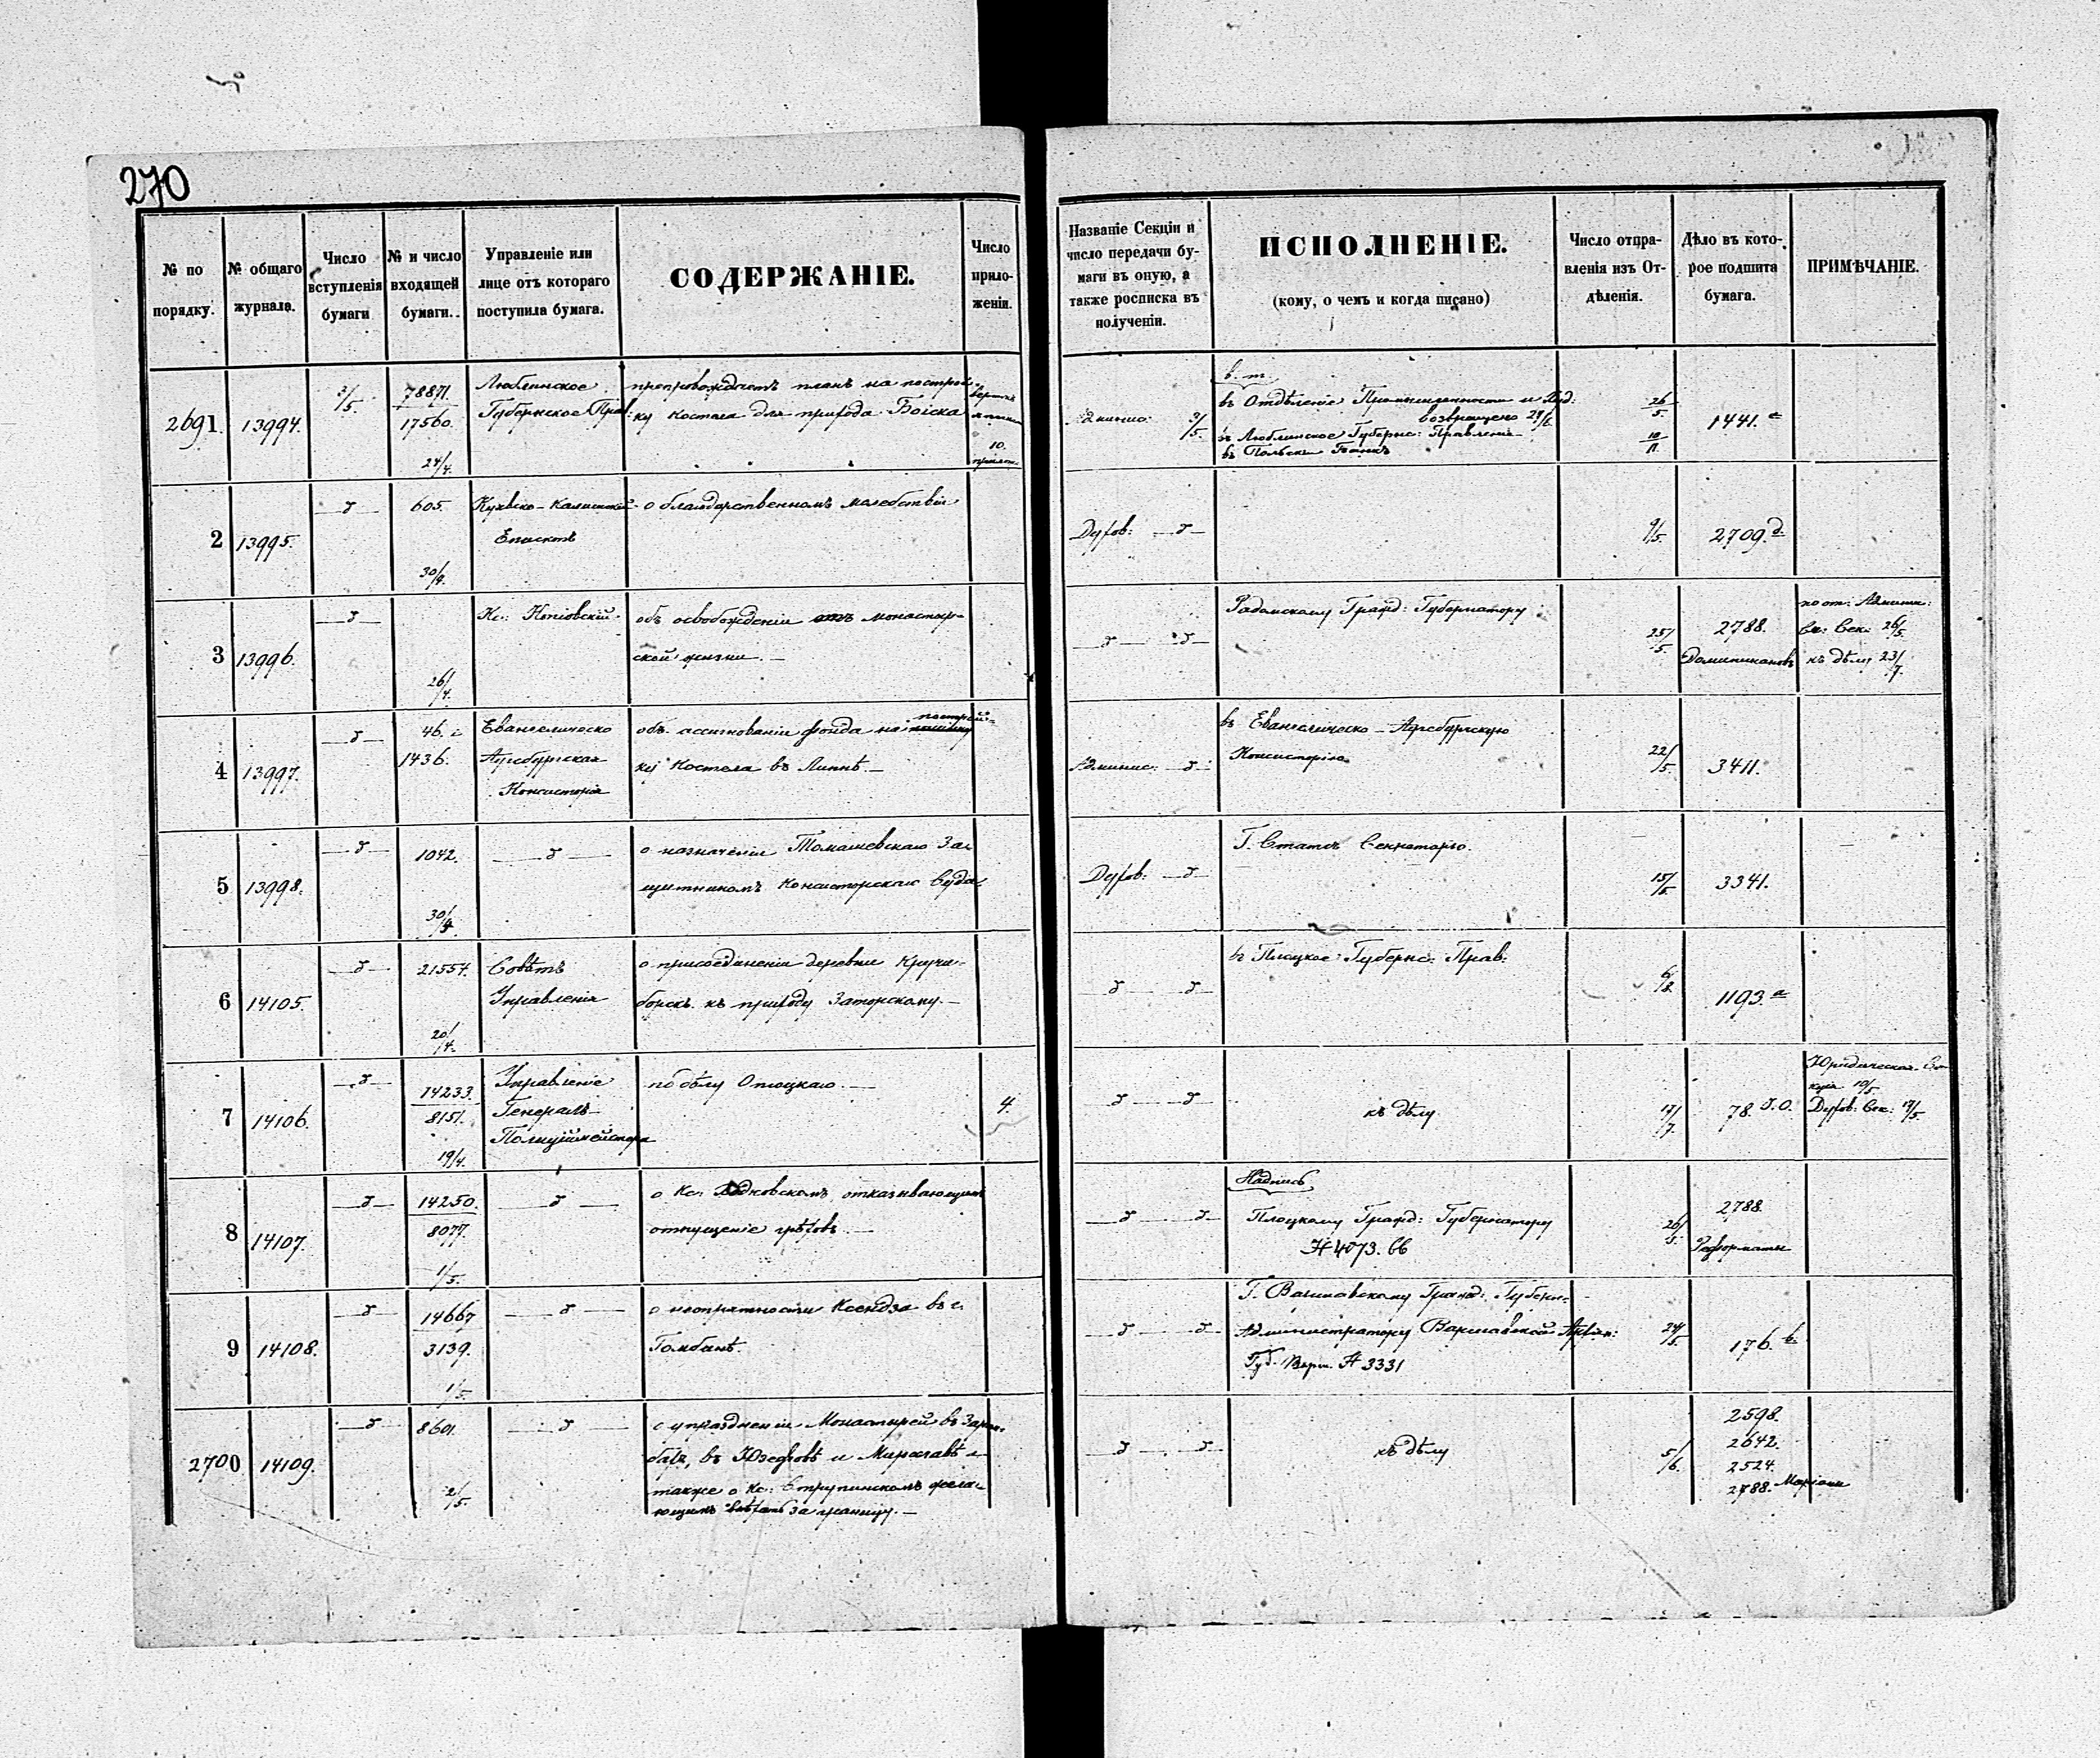 270
№ по порядку.
№ общаго журнала.
Число вступленія бумаги
№ и число входящей бумаги.
Управленіе или лице отъ котораго поступила бумага.
СОДЕРЖАНІЕ.
Число приложеній.
Названіе Секціи и число передачи бумаги въ оную, а также росписка въ полученіи.
ИСПОЛНЕНІЕ.
(кому, о чемъ и когда писано)
Число отправленія изъ Отдѣленія.
Дѣло въ которое подшита бумага.
ПРИМѢЧАНІЕ.
2691. 13994. 2/5. 78871. 17560. 24/4.
Люблинское
Губернское Прав:
препровождаетъ планъ на построй-
ку костела для прихода Боіска
10.
2/5.
в. т.
въ Отдѣленіе Промышленности и
возвращено
въ Люблинское Губернс: Правленіе
въ Польскій Банкъ
26/5.
1441. a
2 13995. 605. 30/4.
Куявско-Калишскій
Епископъ
о благодарственномъ молебствіи
Духов: 9/5. 2709. d
3 13996. 26/4.
Кс:
объ освобожденіи отъ монастыр-
ской жизни. —
Радомскому Гражд: Губернатору
25/5.
2788.
Доминикановъ
Сек: 26/5.
къ дѣлу 23/7.
4 13997. 46. 1436.
Евангелическо
Аугсбургская
Консисторія
объ ассигнованіи фонда на построй-
ку костела въ Липнѣ. —
Админис:
въ Евангелическо-Аугсбургскую
Консисторію
22/5. 3411.
5 13998. 1042. 30/4.
о назначеніи Томашевскаго За-
щитникомъ Консисторскаго Суда.
Духов:
Г. Статсъ Секретарю.
15/5. 3341.
6 14105. 21554. 20/4.
Совѣтъ
Управленія
о присоединеніи деревни Кручи-
борскъ къ приходу Заторскому. —
въ Плоцкое Губернс: Прав:
1193. a
7 14106. 14233. 8151. 19/4.
Управленіе
Генералъ-
Полицiймейстера
по дѣлу Опоцкаго. —
4.
къ дѣлу
17/7.
78
Юридическая Се-
кція 10/5
Духов: Сек: 17/5
8 14107. 14250. 8077. 1/5.
о Кс: отказывающимъ
отпущеніе грѣховъ. —
Надпись
Плоцкому Гражд: Губернатору
№ 4073.
26/5.
2788.
Реформаты
9 14108. 14667 3139. 1/5.
о неопрятности Ксендза въ г.
Гомбинѣ.
Г. Варшавскому Гражд: Губерн:
Администратору Варшавской
№ 3331
24/5. 176. b
2700 14109. 8601. 2/5.
о упраздненіи Монастырей въ
въ Юзефовѣ и Мирославѣ а
также о Кс: Струпинскомъ жела-
ющимъ за границу. —
къ дѣлу
5/6.
2598.
2642.
2524.
2788. Маріане